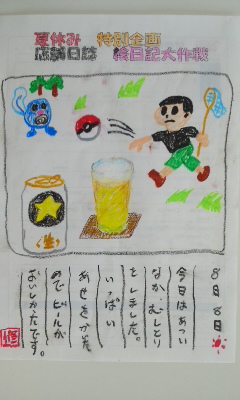 夏休み 特別企画
店舗日誌 絵日記大作戦
生
8月8日
今日はあつい
なか、むしとり
をしました。
いっぱい
あせをかいた
のでビールが
おいしかったです。